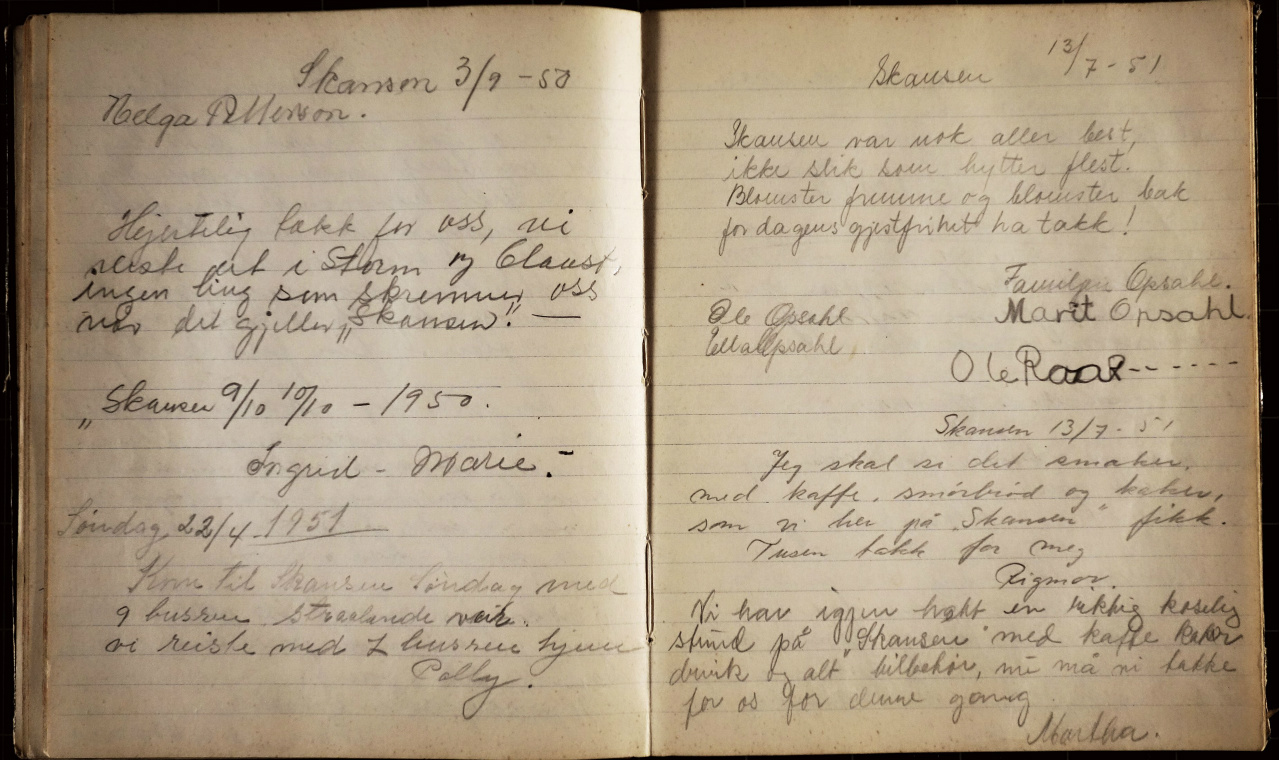 Skansen 3/9 - 50
Helga Pettersson.
Hjertelig takk for oss, vi
reiste ut i Storm og
ingen ting som skremmer oss
når det gjeller „Skansen". —
„Skansen 9/10 10/10 - 1950.
Ingrid - Marie.
Søndag 22/4 - 1951
Kom til Skansen Søndag med
9 bussen straalande veir.
vi reiste med 7 bussen hjem
Polly.
Skansen 13/7 - 51
Skansen var nok aller best,
ikke slik som hytter flest.
Blomster fremme og blomster bak
for dagens gjestfrihet ha takk!
Familien Opsahl.
Ole Opsahl Marit Opsahl.
Ella Opsahl
Ole Roar - - - - - -
Skansen 13/7 - 51
Jeg skal si det smaker,
med kaffe, smörbröd og kaker,
som vi her på „Skansen" fikk.
Tusen takk for meg
Rigmor.
Vi har igjen hatt en riktig koselig
stund på "Skansen" med kaffe kaker
drikk og alt tilbehör, nu må vi takke
for os for denne gang
Martha.